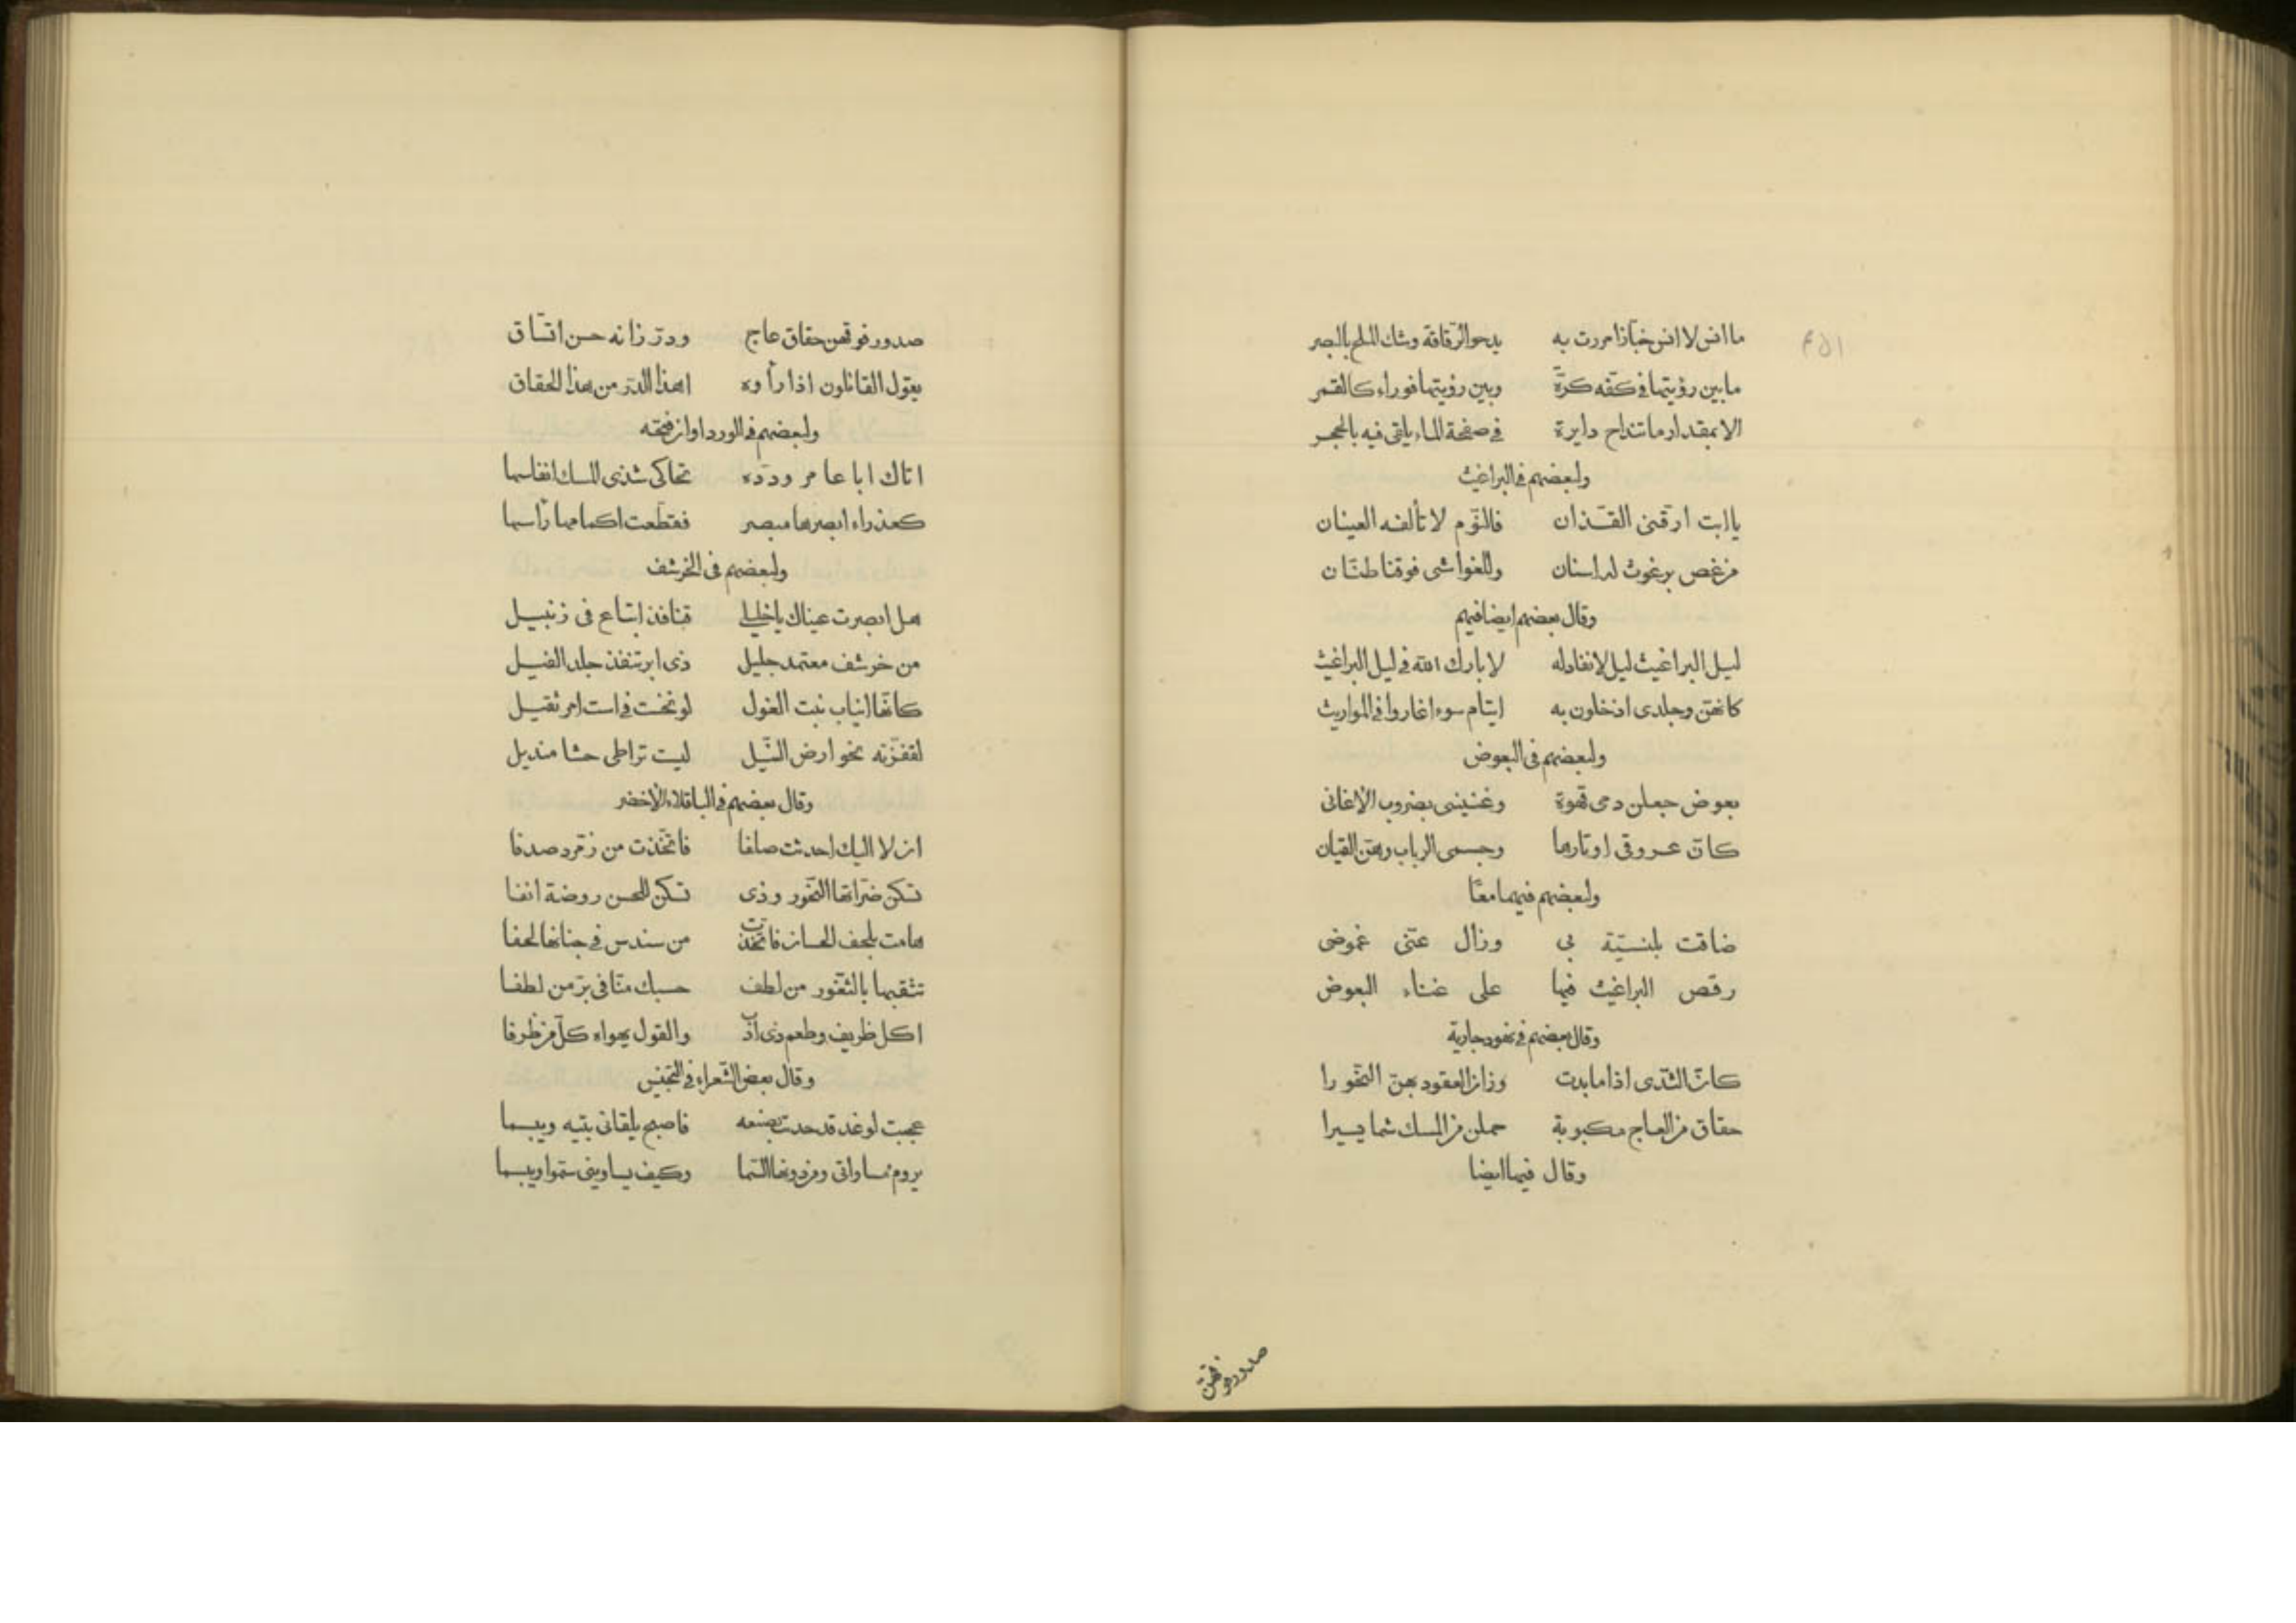 ما انس لا انس خبازا مررت به يدحو الرقاقة وشك اللمح بالبصر
ما بين رؤيتها فى كفه كرة وبين رؤيتها فوراء كالقمر
الا بمقدار ما تنداح دايرة فى صفحة الماء يلقى فيه بالحجر
ولبعضهم فى البراغيث
يا ابت ارقنى القذان فالنوم لا تألفه العينان
من غص برغوث له اسنان وللغواشى فوقنا طنان
وقال بعضهم ايضا فيهم
ليل البراغيث ليل لا نفاد له لا بارك الله فى ليل البراغيث
كانهن وجلدى اذ خلون به ايتام سوء اغاروا فى المواريث
ولبعضهم فى البعوض
بعوض جعلن دمى قهوة وغنيننى بضروب الاغانى
كان عروقى اوتارها وجسمى الرباب وهن القيان
ولبعضهم فيهما معًا
ضاقت بلنسيّة بى وزال عنّى غموضى
رقص البراغيث فيها على غناء البعوض
وقال بعضهم فى نهود جارية
كان الثدى اذا ما بدت وزان العقود بهن النحورا
حقاق من العاج مكبوبة حملن من المسك شما يسيرا
وقال فيها ايضا
صدور فوقهن
صدور فوقهن حقاق عاج ودرّ زانه حسن اتّساق
يقول القائلون اذا رأوه اهذا الدر من هذا الحقاق
ولبعضهم فى الورد اوان فتحه
اتاك ابا عامر وردة تحاكى شذى المسك انفاسها
كعذراء ابصرها مبصر فغطت اكمامها رأسها
ولبعضهم فى الخرشف
هل ابصرت عيناك يا خليلى قنافذ ابتاع فى زنبيل
من خرشف معتمد جليل ذى ابر تنفذ جلد الفيل
كانها انياب نبت الغول لو نخست فى است امر ثقيل
لقفزته نحو ارض النيل ليت تراطى حشا منديل
وقال بعضهم فى الباقلاء الاخضر
ان لا اليك احدثت صلفا فاتخذت من زمرد صدفا
تسكن ضراتها النحور وذى تسكن للحسن روضة انفا
هامت بلحف الحسان فاتخذت من سندس فى جنانها لحفا
تثقبها بالثغور من لطف حسبك منا فى برّ من لطفا
اكل ظريف وطعم ذى ادب والقول يهواه كل من ظرفا
وقال بعض الشعراء فى التجنيس
عجبت لوغد قد حدت بضبعه فاصبح يلقانى بتيه ويبسما
يروم مساواتى ومن دونها السما وكيف يساوينى سموا ويبسما